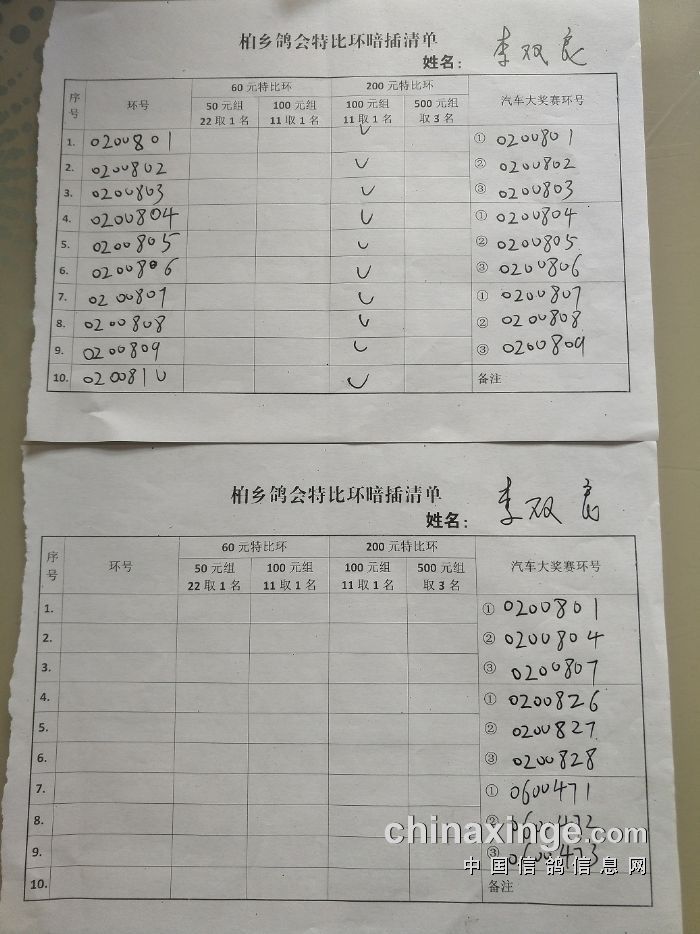 柏乡鸽会特比环暗插清单
姓名： 李双良
序号 环号 60元特比环 200元特比环 汽车大奖赛环号
50元组 22取1名 100元组 11取1名 100元组 11取1名 500元组 取3名
1. 0200801 ✓ ① 0200801
2. 0200802 ✓ ② 0200802
3. 0200803 ✓ ③ 0200803
4. 0200804 ✓ ① 0200804
5. 0200805 ✓ ② 0200805
6. 0200806 ✓ ③ 0200806
7. 0200807 ✓ ① 0200807
8. 0200808 ✓ ② 0200808
9. 0200809 ✓ ③ 0200809
10. 0200810 ✓ 备注
柏乡鸽会特比环暗插清单
姓名： 李双良
序号 环号 60元特比环 200元特比环 汽车大奖赛环号
50元组 22取1名 100元组 11取1名 100元组 11取1名 500元组 取3名
1. ① 0200801
2. ② 0200804
3. ③ 0200807
4. ① 0200826
5. ② 0200827
6. ③ 0200828
7. ① 0600471
8. ② 0600472
9. ③ 0600473
10. 备注
chinaxinge.com
中国信鸽信息网